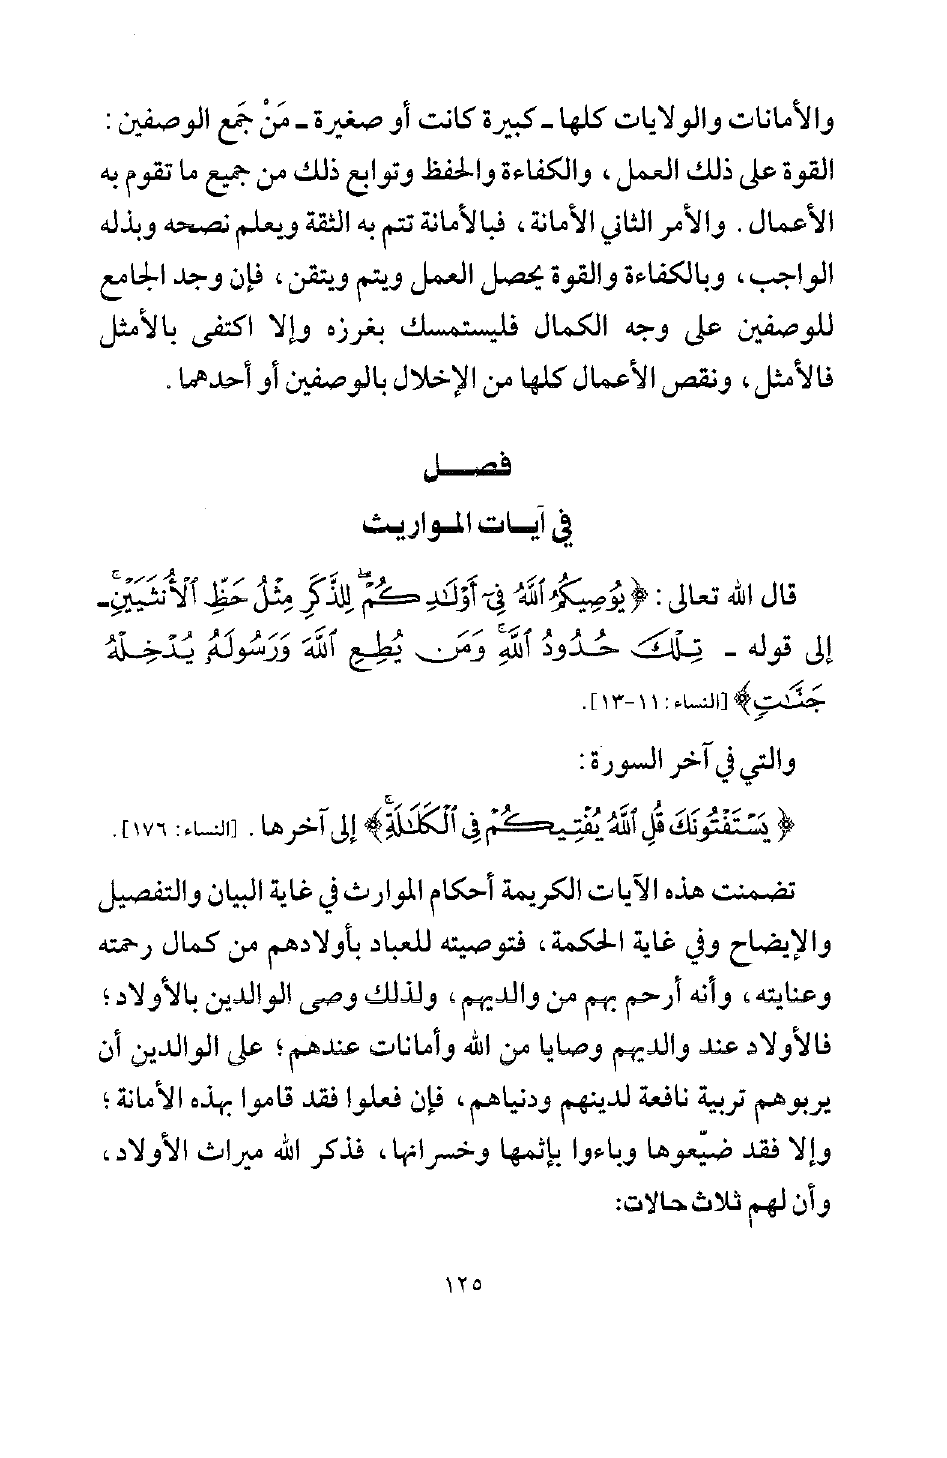 والأمانات والولايات كلها ـ كبيرة كانت أو صغيرة ـ مَنْ جَمَع الوصفين :
القوة على ذلك العمل ، والكفاءة والحفظ وتوابع ذلك من جميع ما تقوم به
الأعمال . والأمر الثاني الأمانة ، فبالأمانة تتم به الثقة ويعلم نصحه وبذله
الواجب ، وبالكفاءة والقوة يحصل العمل ويتم ويتقن ، فإن وجد الجامع
للوصفين على وجه الكمال فليستمسك بغرزه وإلا اكتفى بالأمثل
فالأمثل ، ونقص الأعمال كلها من الإخلال بالوصفين أو أحدهما .
فصــــل
في آيــات المـواريـث
قال الله تعالى : ﴿ يُوصِيكُمُ ٱللَّهُ فِىٓ أَوْلَـٰدِكُمْ ۖ لِلذَّكَرِ مِثْلُ حَظِّ ٱلْأُنثَيَيْنِ ۚ ـ
إلى قوله ـ تِلْكَ حُدُودُ ٱللَّهِ ۚ وَمَن يُطِعِ ٱللَّهَ وَرَسُولَهُ يُدْخِلْهُ
جَنَّـٰتٍ ﴾ [النساء : ١١-١٣] .
والتي في آخر السورة :
﴿ يَسْتَفْتُونَكَ قُلِ ٱللَّهُ يُفْتِيكُمْ فِى ٱلْكَلَـٰلَةِ ۚ ﴾ إلى آخرها . [النساء : ١٧٦] .
تضمنت هذه الآيات الكريمة أحكام الموارث في غاية البيان والتفصيل
والإيضاح وفي غاية الحكمة ، فتوصيته للعباد بأولادهم من كمال رحمته
وعنايته ، وأنه أرحم بهم من والديهم ، ولذلك وصى الوالدين بالأولاد ؛
فالأولاد عند والديهم وصايا من الله وأمانات عندهم ؛ على الوالدين أن
يربوهم تربية نافعة لدينهم ودنياهم ، فإن فعلوا فقد قاموا بهذه الأمانة ؛
وإلا فقد ضيّعوها وباءوا بإثمها وخسرانها ، فذكر الله ميراث الأولاد ،
وأن لهم ثلاث حالات :
١٢٥